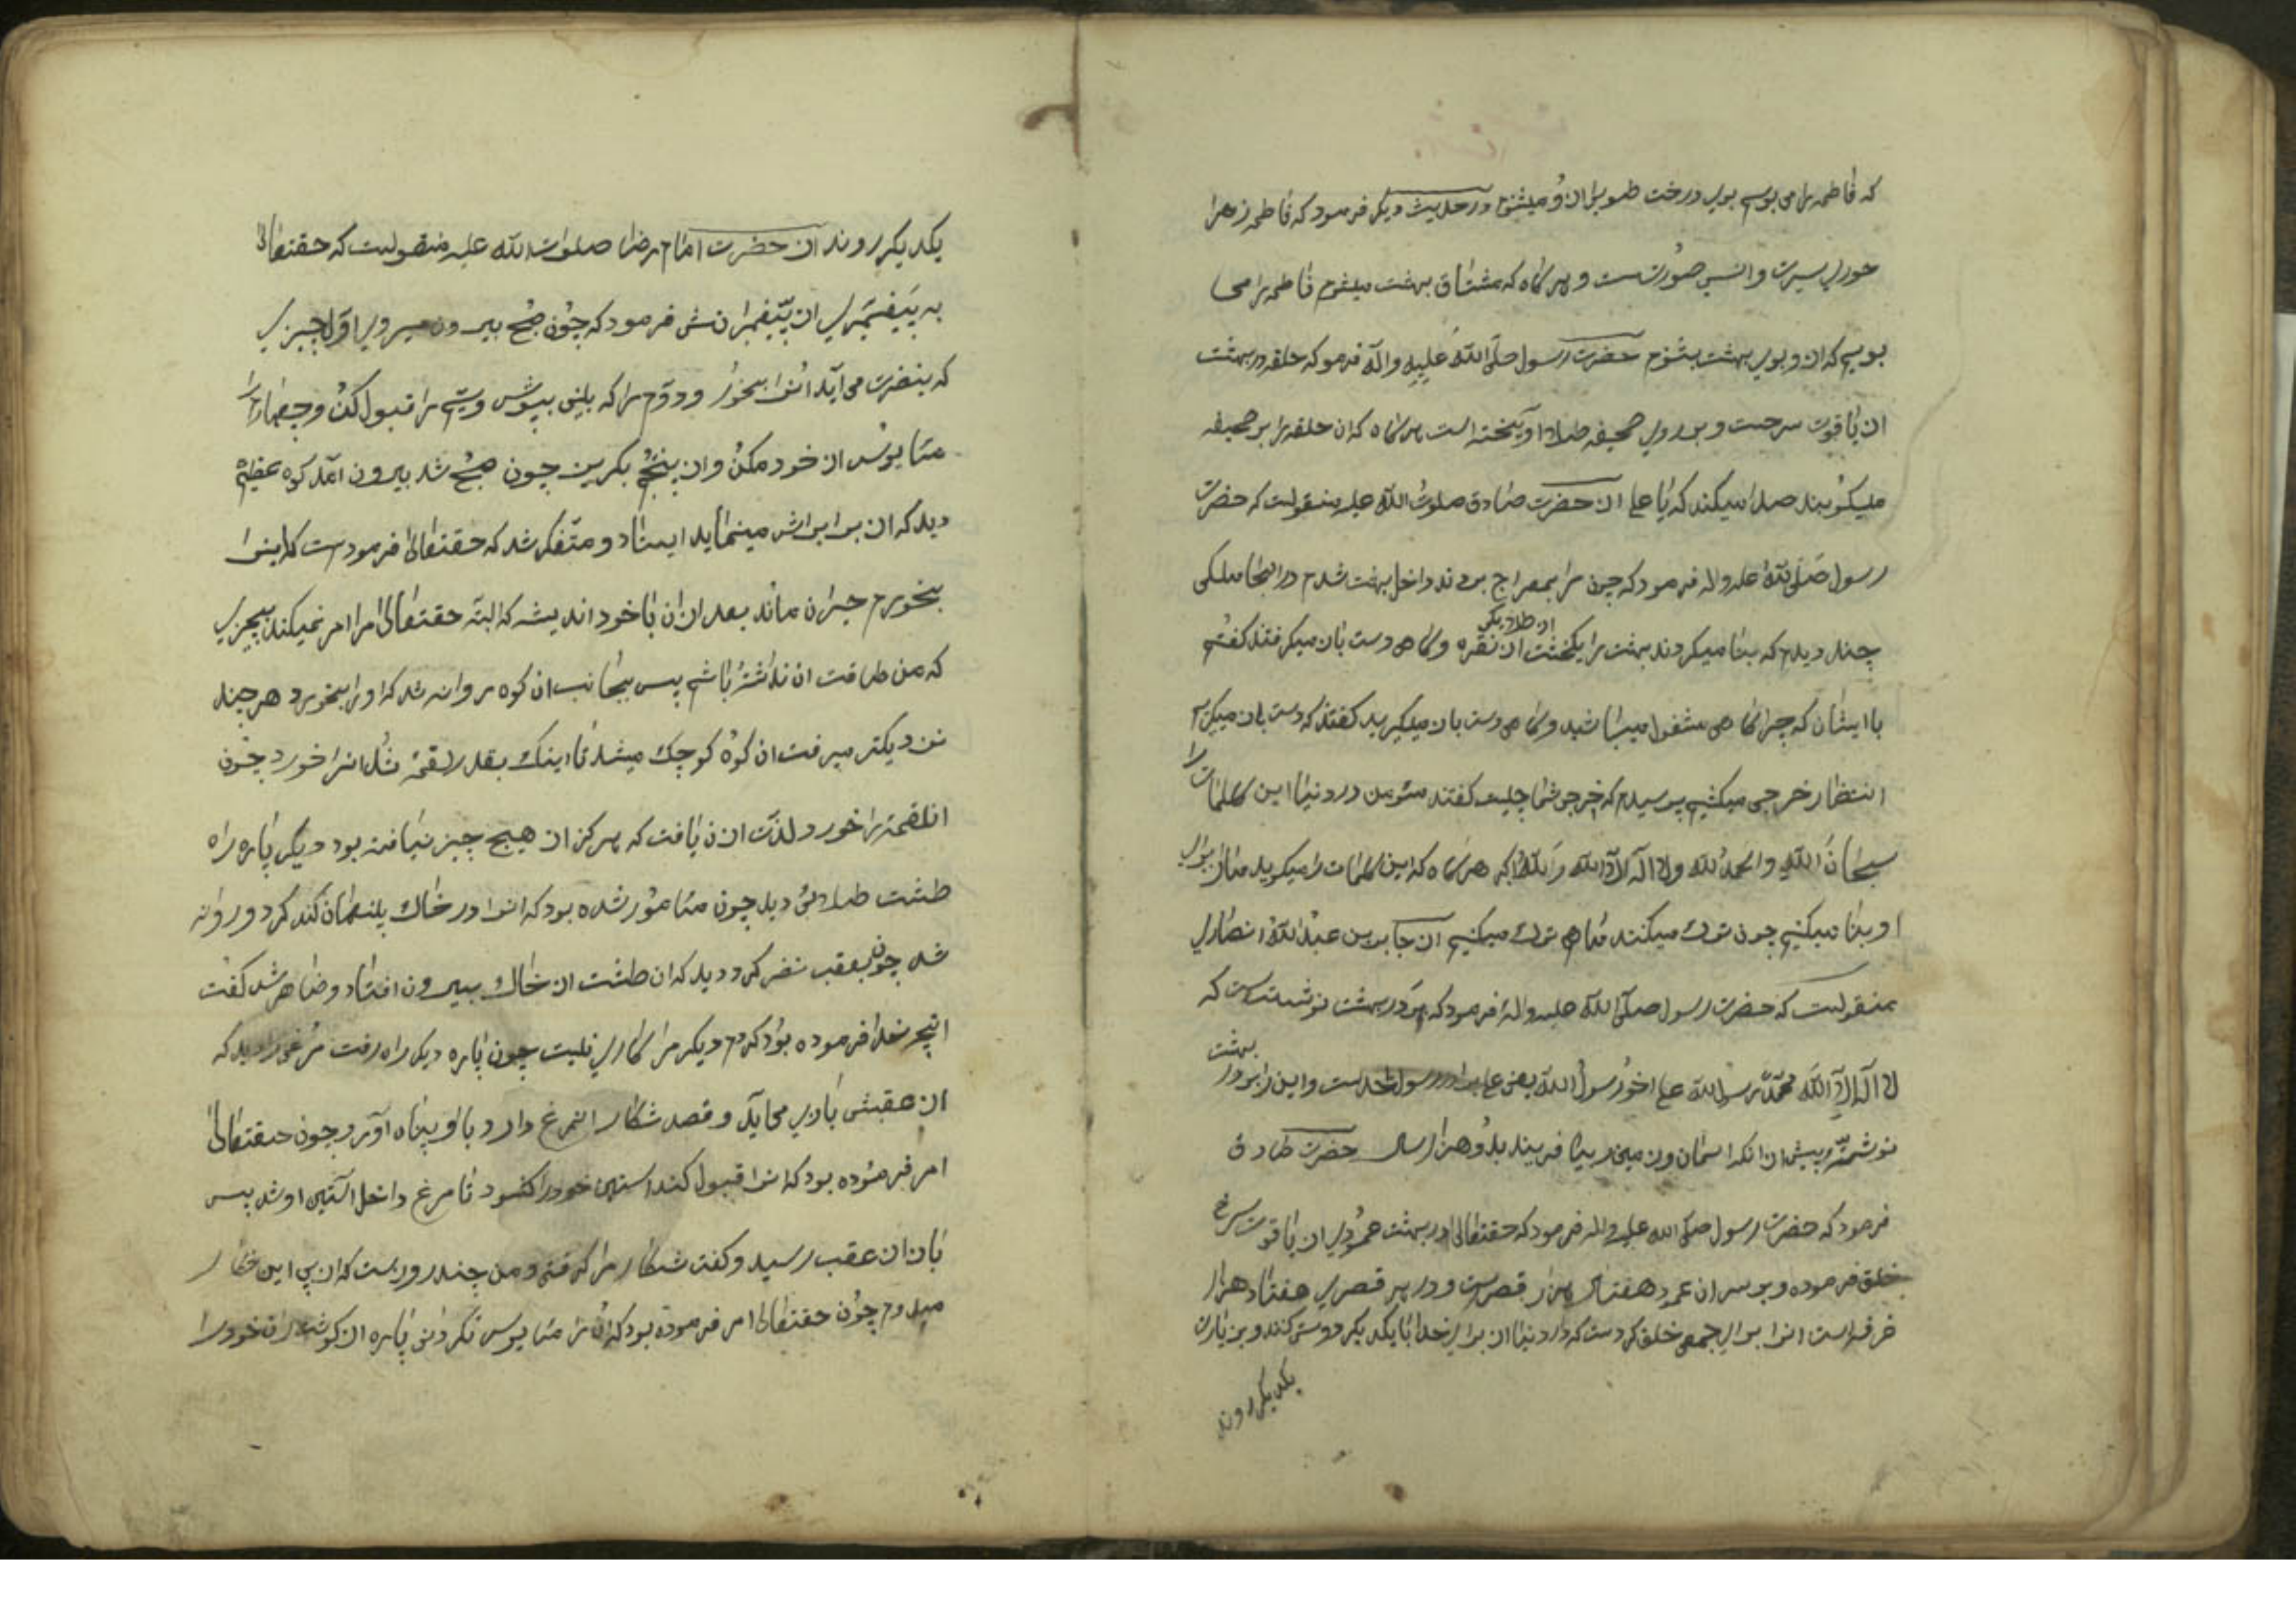 که فاطمه را می بوسم بوی درخت طوبی از او میشنوم در حدیث دیگر فرمود که فاطمه زهرا
حوری سیرت و انسی صورتست و هر گاه که مشتاق بهشت میشوم فاطمه را می
بویم که از و بوی بهشت بشنوم حضرت رسول صلی الله علیه و اله فرمو که حلقه در بهشت
از یاقوت سرخست و بر روی صحیفه طلا آویخته است هر گاه که ان حلقه را بر صحیفه
میکوبند صدا میکند که یا علی از حضرت صادق صلوت الله علیه منقولست که حضرت
رسول صلی الله علیه و اله فرمود که چون مرا بمعراج بردند داخل بهشت شدم در انجا ملکی
چند دیدم که بنا میکردند بهشت را یکخشت از نقره از طلا دیگر و گاهی دست بان میکرفتند کفتم
با ایشان که چرا گاهی مشغول میباشید و گاهی دست بان میگیرید کفتند که دست بان میکریم
انتظار خرجی میکشیم پرسیدم که خرجی شما چلیست کفتند مئومن در دنیا این کلمات را
سبحان الله و الحمد لله و لا اله الا الله و الله اکبر هر گاه که این کلمات را میکوید ما از برای
او بنا میکنیم چون ترک میکنند ما هم ترک میکنیم از جابر بن عبد الله انصاری
منقولست که حضرت رسول صلی الله علیه و اله فرمود که بر در بهشت نوشته است که
لا اله الا الله محمد رسول الله علی اخو رسول الله یعنی علی برادر رسول خداست و این را بر در بهشت
نوشته پیش از انکه اسمان و زمین را بیافریند بدو هزار سال حضرت صادق
فرمود که حضرت رسول صلی الله علیه و اله فرمود که حقتعالی در بهشت عمودی از یاقوت سرخ
خلق فرموده و بر سر ان عمود هفتاد هزار قصرست و در هر قصری هفتاد هزار
غرفه است انرا برای جمعی خلق کردست که در دنیا از برای خدا با یکدیکر دوستی کنند و بزیارت
یکدیکر روند
یکدیکر روند از حضرت امام رضا صلوات الله علیه منقولست که حقتعالی
به پیغمبری از پیغمبرانش فرمود که چون صبح بیرون میروی اول چیزی
که بنضرت می آید انرا بخور و دوم را که بلینی بپوش و سیم را قبول کن و چهارم را
مایوس از خود مکن و از پنجم بکریز چون صبح شد بیرون امد کوه عظیم
دید که ان برابرش مینماید ایستاد و متفکر شد که حقتعالی فرمودست که اینرا
بخورم حیران ماند بعد از ان با خود اندیشه که البته حقتعالی مرا امر نمیکند بچیزی
که من طاقت ان نداشته باشم پس بجانب ان کوه روانه شد که او را بخورد هر چند
نزدیکتر میرفت ان کوه کوچک میشد تا اینک بقدر لقمه شد انرا خورد چون
انلقمه را خورد لذت از ان یافت که هرکز از هیچ چیز نیافته بود دیگر پاره راه
طشت طلائی دید چون مامور شده بود که انرا در خاک پنهان کند کرد و روانه
شد چون بعقب نضر کرد دید که ان طشت از خاک بیرون افتاد و ضاهر شد کفت
انچه خدا فرموده بود کردم دیکر مرا کاری نیست چون پاره دیکر راه رفت مرغی را دید که
از عقبش بازی می آید و قصد شکار انمرغ دارد باو پناه آورد چون حقتعالی
امر فرموده بود که انرا قبول کند استین خود را کشود تا مرغ داخل استین او شد پس
باز از عقب رسید و کفت شکار مرا کرفتی و من چند روزست که از پی این شکار
میدوم چون حقتعالی امر فرموده بود که ان را مایوس نکردانی پاره از کوشت ران خود را